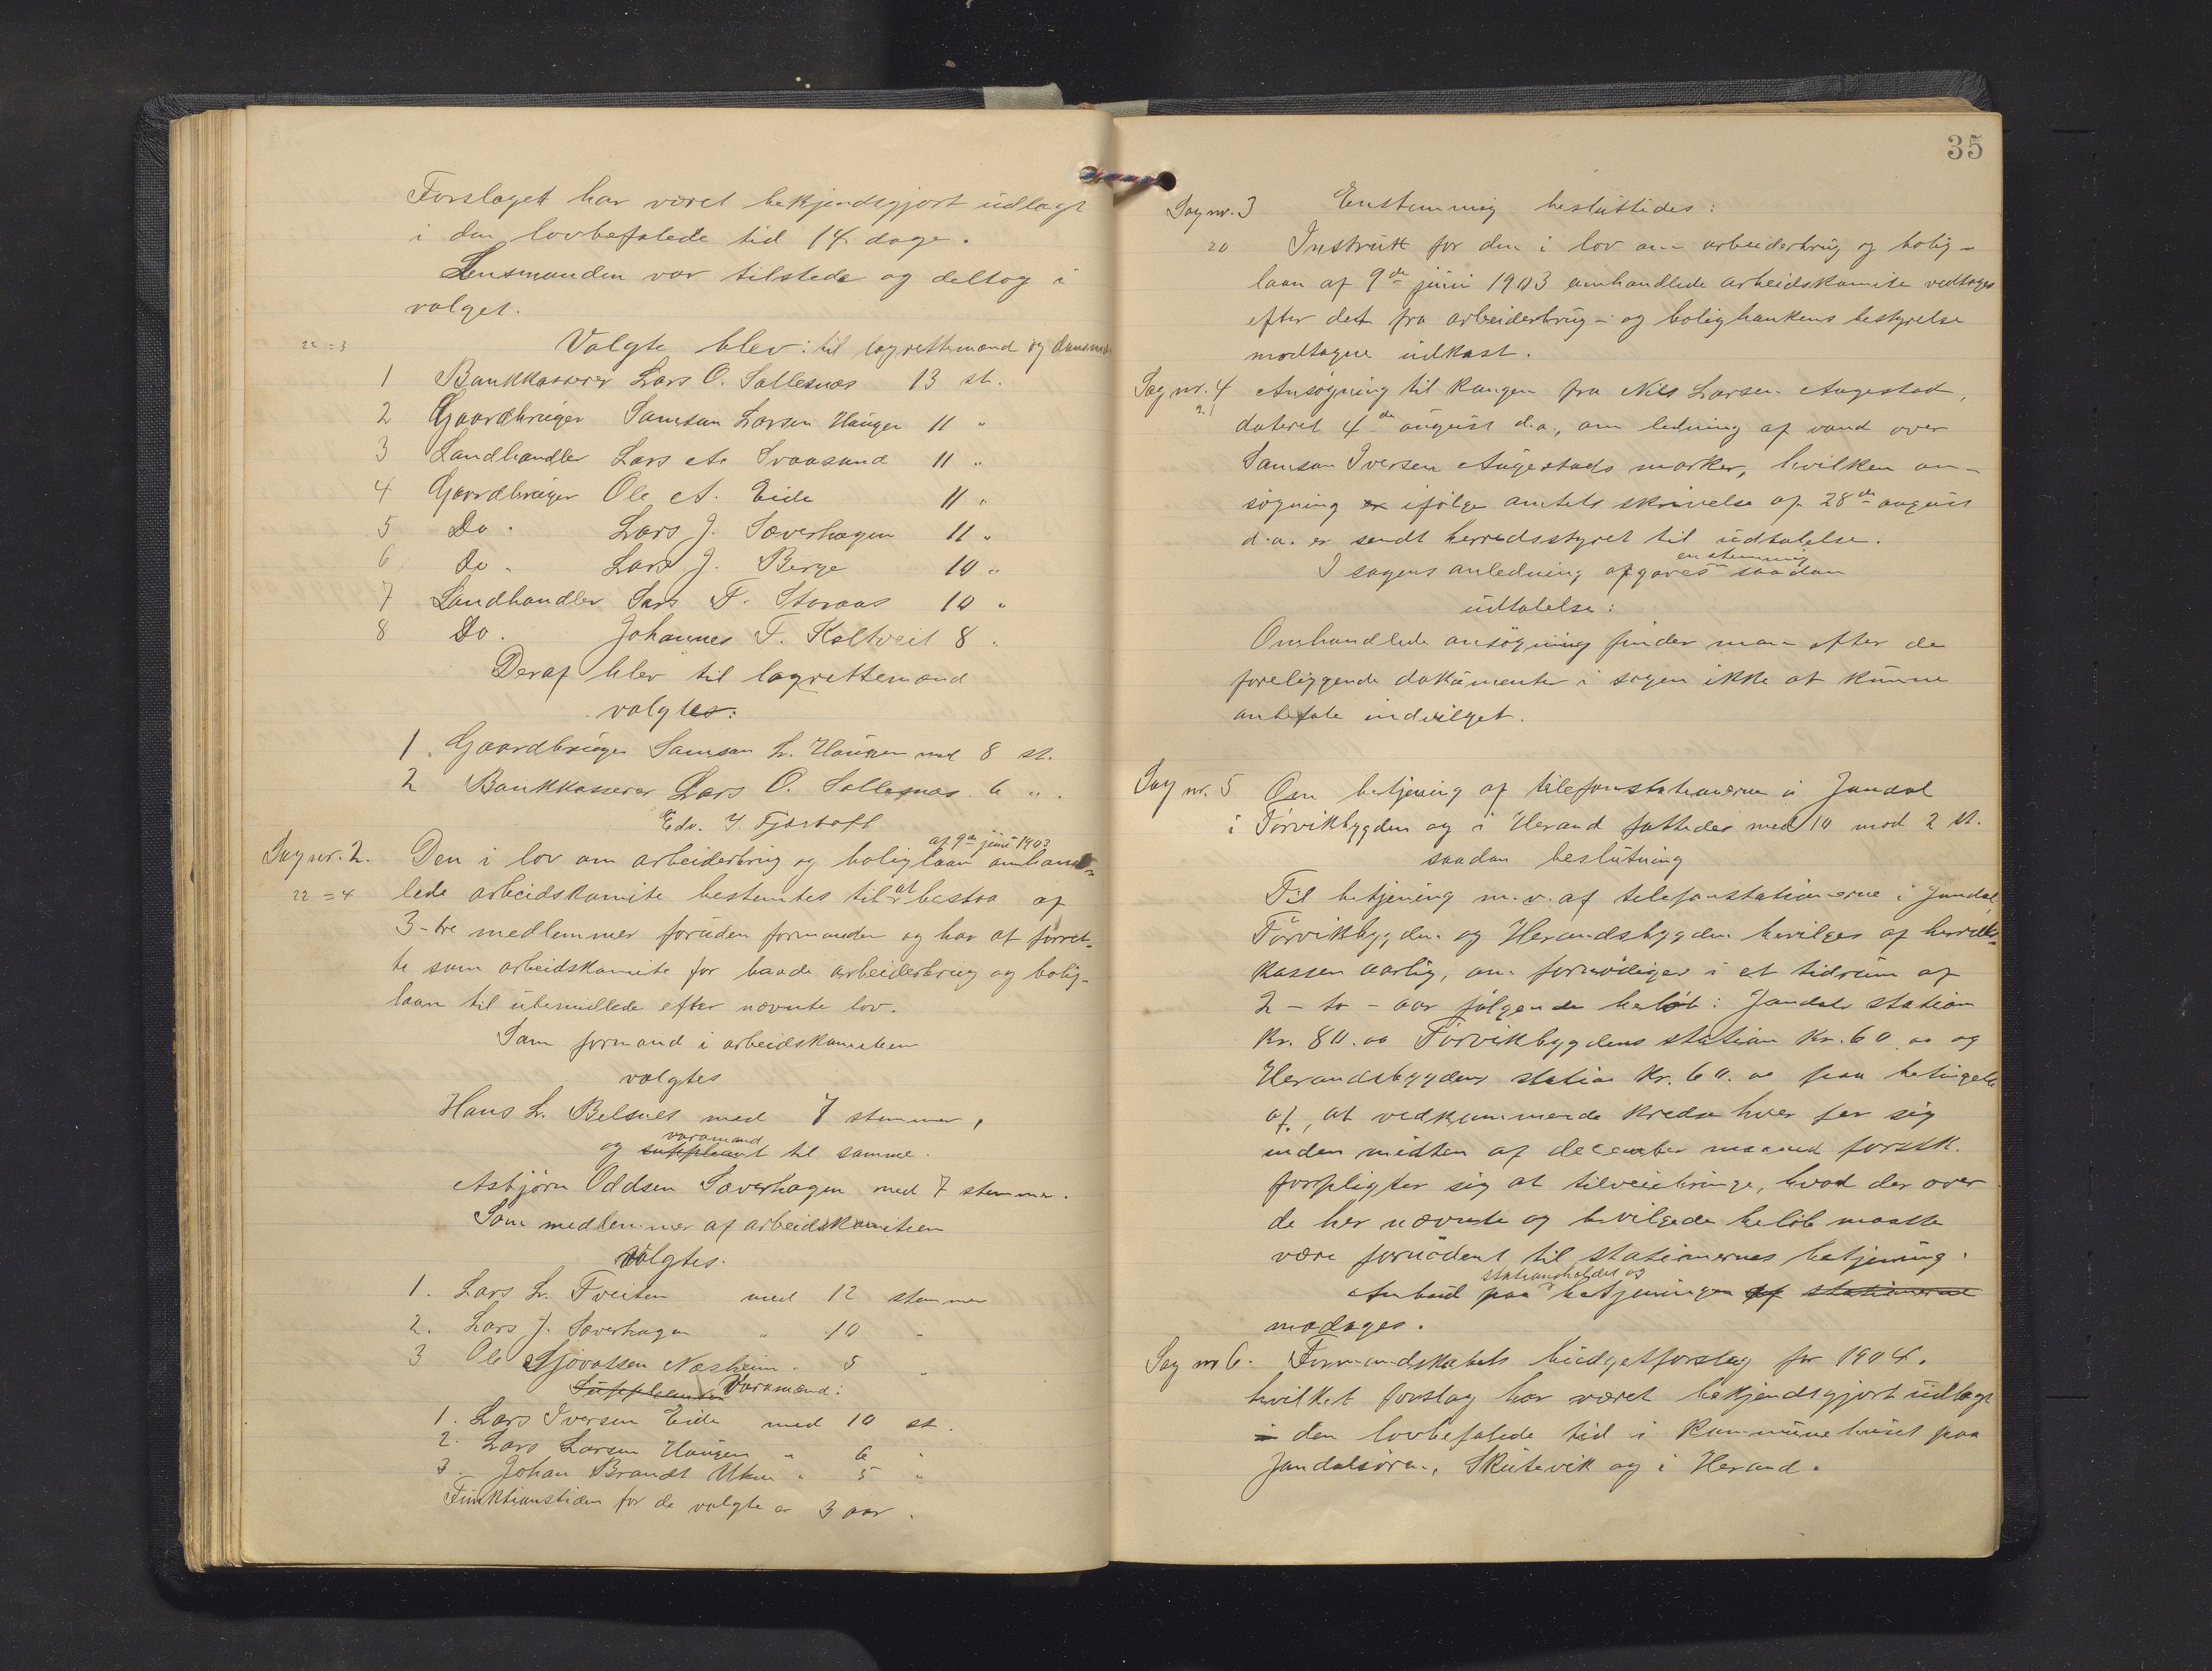 Forslaget har været bekjendtgjort udlagt
i den lovbefalede tid 14 dage.
Lensmanden var tilstede og deltog i
valget.
22=3 Valgte blev: til lagrettemænd og domsmænd
1 Bankkasserer Lars O. Sallesnæs 13 st.
2 Gaardbruger Samson Larsen Haugen 11 "
3 Landhandler Lars A. Svaasand 11 "
4 Gaardbruger Ole A. Eide 11 "
5 Do. Lars J. Sæverhagen 11 "
6 Do. Lars J. Berge 10 "
7 Landhandler Lars T. Storaas 10 "
8 Do. Johannes T. Kaltveit 8 "
Deraf blev til lagrettemænd
valgtes:
1. Gaardbruger Samson L. Haugen med 8 st.
2 Bankkasserer Lars O. Sallesnæs 6 "
Edv. J. Fjørtoft
af 9de juni 1903
Sag nr. 2. Den i lov om arbeiderbrug og boliglaan omhand-
22=4 lede arbeidskomite bestemtes til at bestaa af
3-tre medlemmer foruden formanden og har at forret-
te som arbeidskomite for baade arbeiderbrug og bolig-
laan til ubemidlede efter nævnte lov.
Som formand i arbeidskomiteen
valgtes
Hans L. Belsnes med 7 stemmer,
varamand
og suppleant til samme.
Asbjørn Oddsen Sæverhagen med 7 stemmer.
Som medlemmer af arbeidskomiteen
Valgtes.
1. Lars L. Tveiten med 12 stemmer
2. Lars J. Sæverhagen " 10 "
3 Ole Sjovatsen Næsheim " 5 "
Suppleanter Varamænd:
1. Lars Iversen Eide med 10 st.
2. Lars Larsen Haugen " 6 "
3. Johan Brandt Utne " 5 "
Funktionstiden for de valgte er 3 aar.
35
Sag nr. 3 Enstemmig besluttedes:
20 Instruks for den i lov om arbeiderbrug og bolig-
laan af 9de juni 1903 omhandlede arbeidskomite vedtages
efter det fra arbeiderbrug- og boligbankens bestyrelse
modtagne udkast.
Sag nr. 4 Ansøgning til Kongen fra Nils Larsen Augestad,
21 dateret 4de august d.a., om ledning af vand over
Samson Iversen Augestads marker, hvilken an-
søgning er ifølge amtets skrivelse af 28de august
d.a. er sendt herredsstyret til udtalelse.
enstemmig
I sagens anledning afgaves saadan
udtalelse:
Omhandlede ansøgning finder man efter de
foreliggende dokumenter i sagen ikke at kunne
anbefale indvilget.
Sag nr. 5 Om betjening af telefonstationerne i Jondal
i Torvikbygden og i Herand fattedes med 10 mod 2 st.
saadan beslutning
Til betjening m.v. af telefonstationerne i Jondal,
Torvikbygden og Herandsbygden bevilges af herreds-
kassen aarlig, om fornødiges i et tidsrum af
2 - to - aar følgende beløb: Jondals station
kr. 80.00 Torvikbygdens station kr. 60.00 og
Herandsbygdens station kr. 60.00 paa betingelse
af, at vedkommende kredse hver for sig
inden midten af december maaned førstk.
forpligter sig at tilveiebringe, hvad der over
de her nævnte og bevilgede beløb maatte
være fornødent til stationernes betjening.
stationsholdet og
Anbud paa betjeningen af stationerne
modages.
Sag nr 6. Formandskabets budgetforslag for 1904.
hvilket forslag har været bekjendtgjort udlagt
i den lovbefalede tid i kommunehuset paa
Jondalsøren, Skutevik og i Herand.